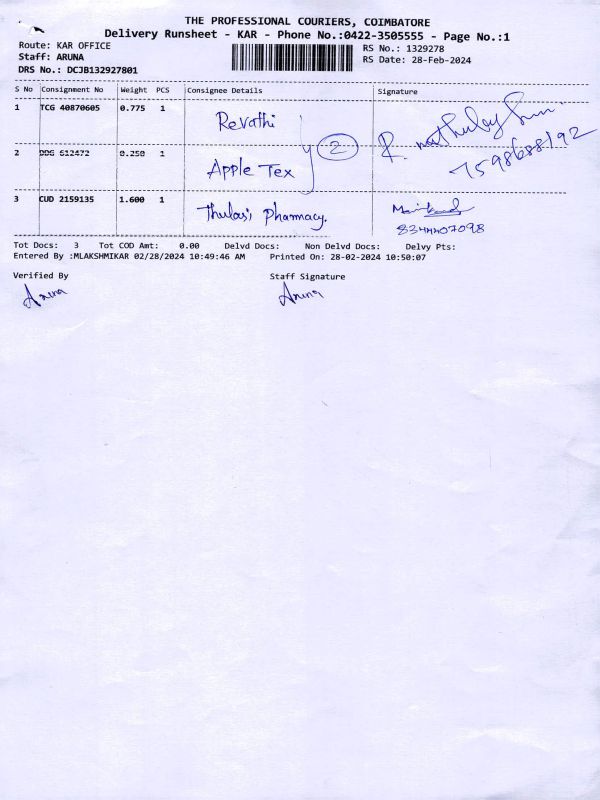 THE PROFESSIONAL COURIERS, COIMBATORE
Delivery Runsheet - KAR - Phone No.:0422-3505555 - Page No.:1
Route: KAR OFFICE
RS No.: 1329278
Staff: ARUNA
RS Date: 28-Feb-2024
DRS No.: DCJB132927801
S No Consignment No Weight PCS Consignee Details Signature
1 TCG 40870605 0.775 1 Revathi
7598688192
2 DDG 612472 0.250 1 Apple Tex 2
3 CUD 2159135 1.600 1 Thulasi Pharmacy.
8344407098
Tot Docs: 3 Tot COD Amt: 0.00 Delvd Docs: Non Delvd Docs: Delvy Pts:
Entered By :MLAKSHMIKAR 02/28/2024 10:49:46 AM Printed On: 28-02-2024 10:50:07
Verified By Staff Signature
Aruna Aruna